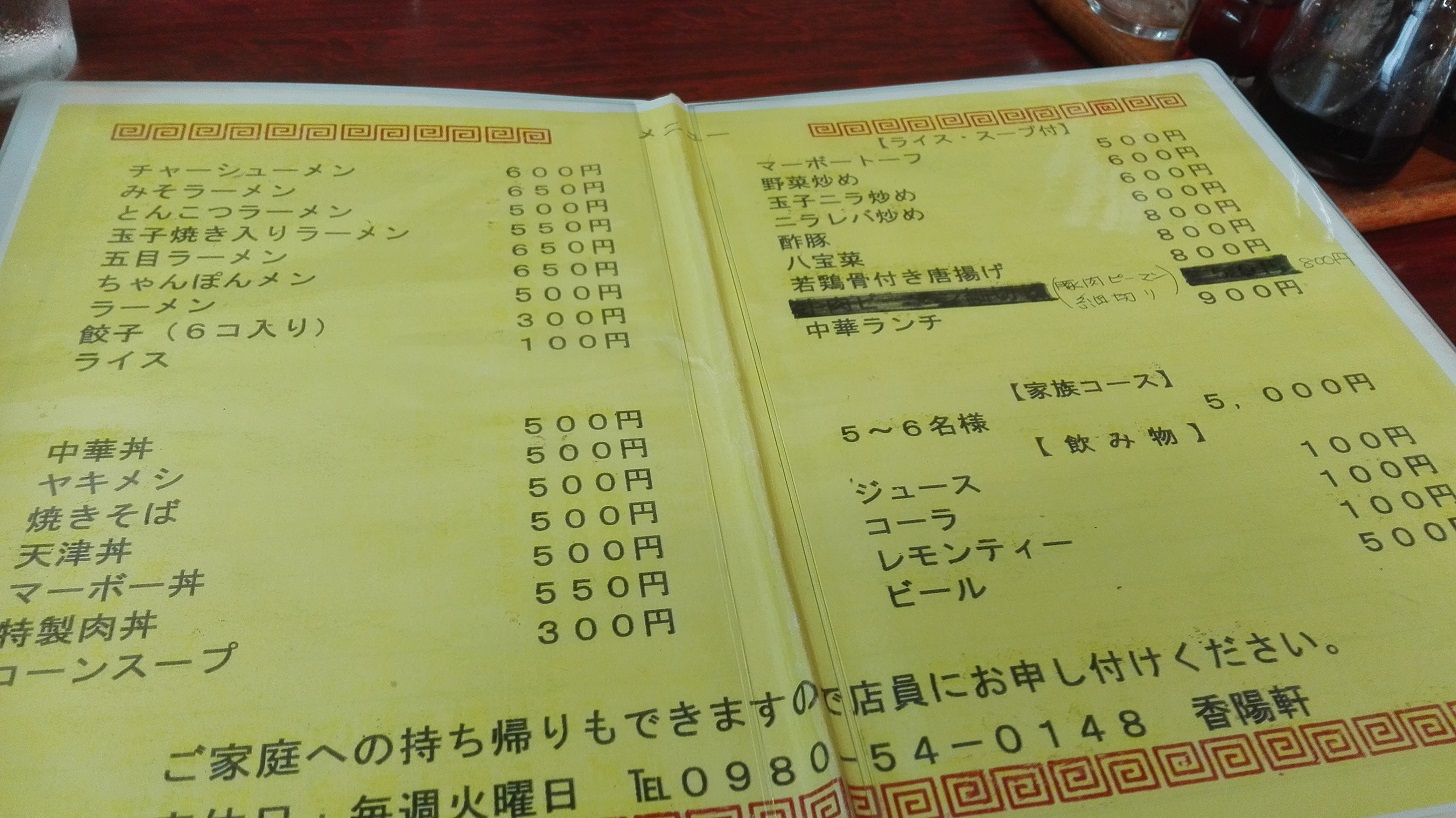 メニュー
チャーシューメン 600円
みそラーメン 650円
とんこつラーメン 500円
玉子焼き入りラーメン 550円
五目ラーメン 650円
ちゃんぽんメン 650円
ラーメン 500円
餃子(6コ入り) 300円
ライス 100円
中華丼 500円
ヤキメシ 500円
焼きそば 500円
天津丼 500円
マーボー丼 500円
特製肉丼 550円
コーンスープ 300円
【ライス・スープ付】
マーボートーフ 500円
野菜炒め 600円
玉子ニラ炒め 600円
ニラレバ炒め 600円
酢豚 800円
八宝菜 800円
若鶏骨付き唐揚げ 800円
(豚肉ピーマン細切り) 800円
中華ランチ 900円
【家族コース】
5~6名様 5,000円
【飲み物】
ジュース 100円
コーラ 100円
レモンティー 100円
ビール 500円
ご家庭への持ち帰りもできますので店員にお申し付けください。
定休日:毎週火曜日 ℡0980-54-0148 香陽軒